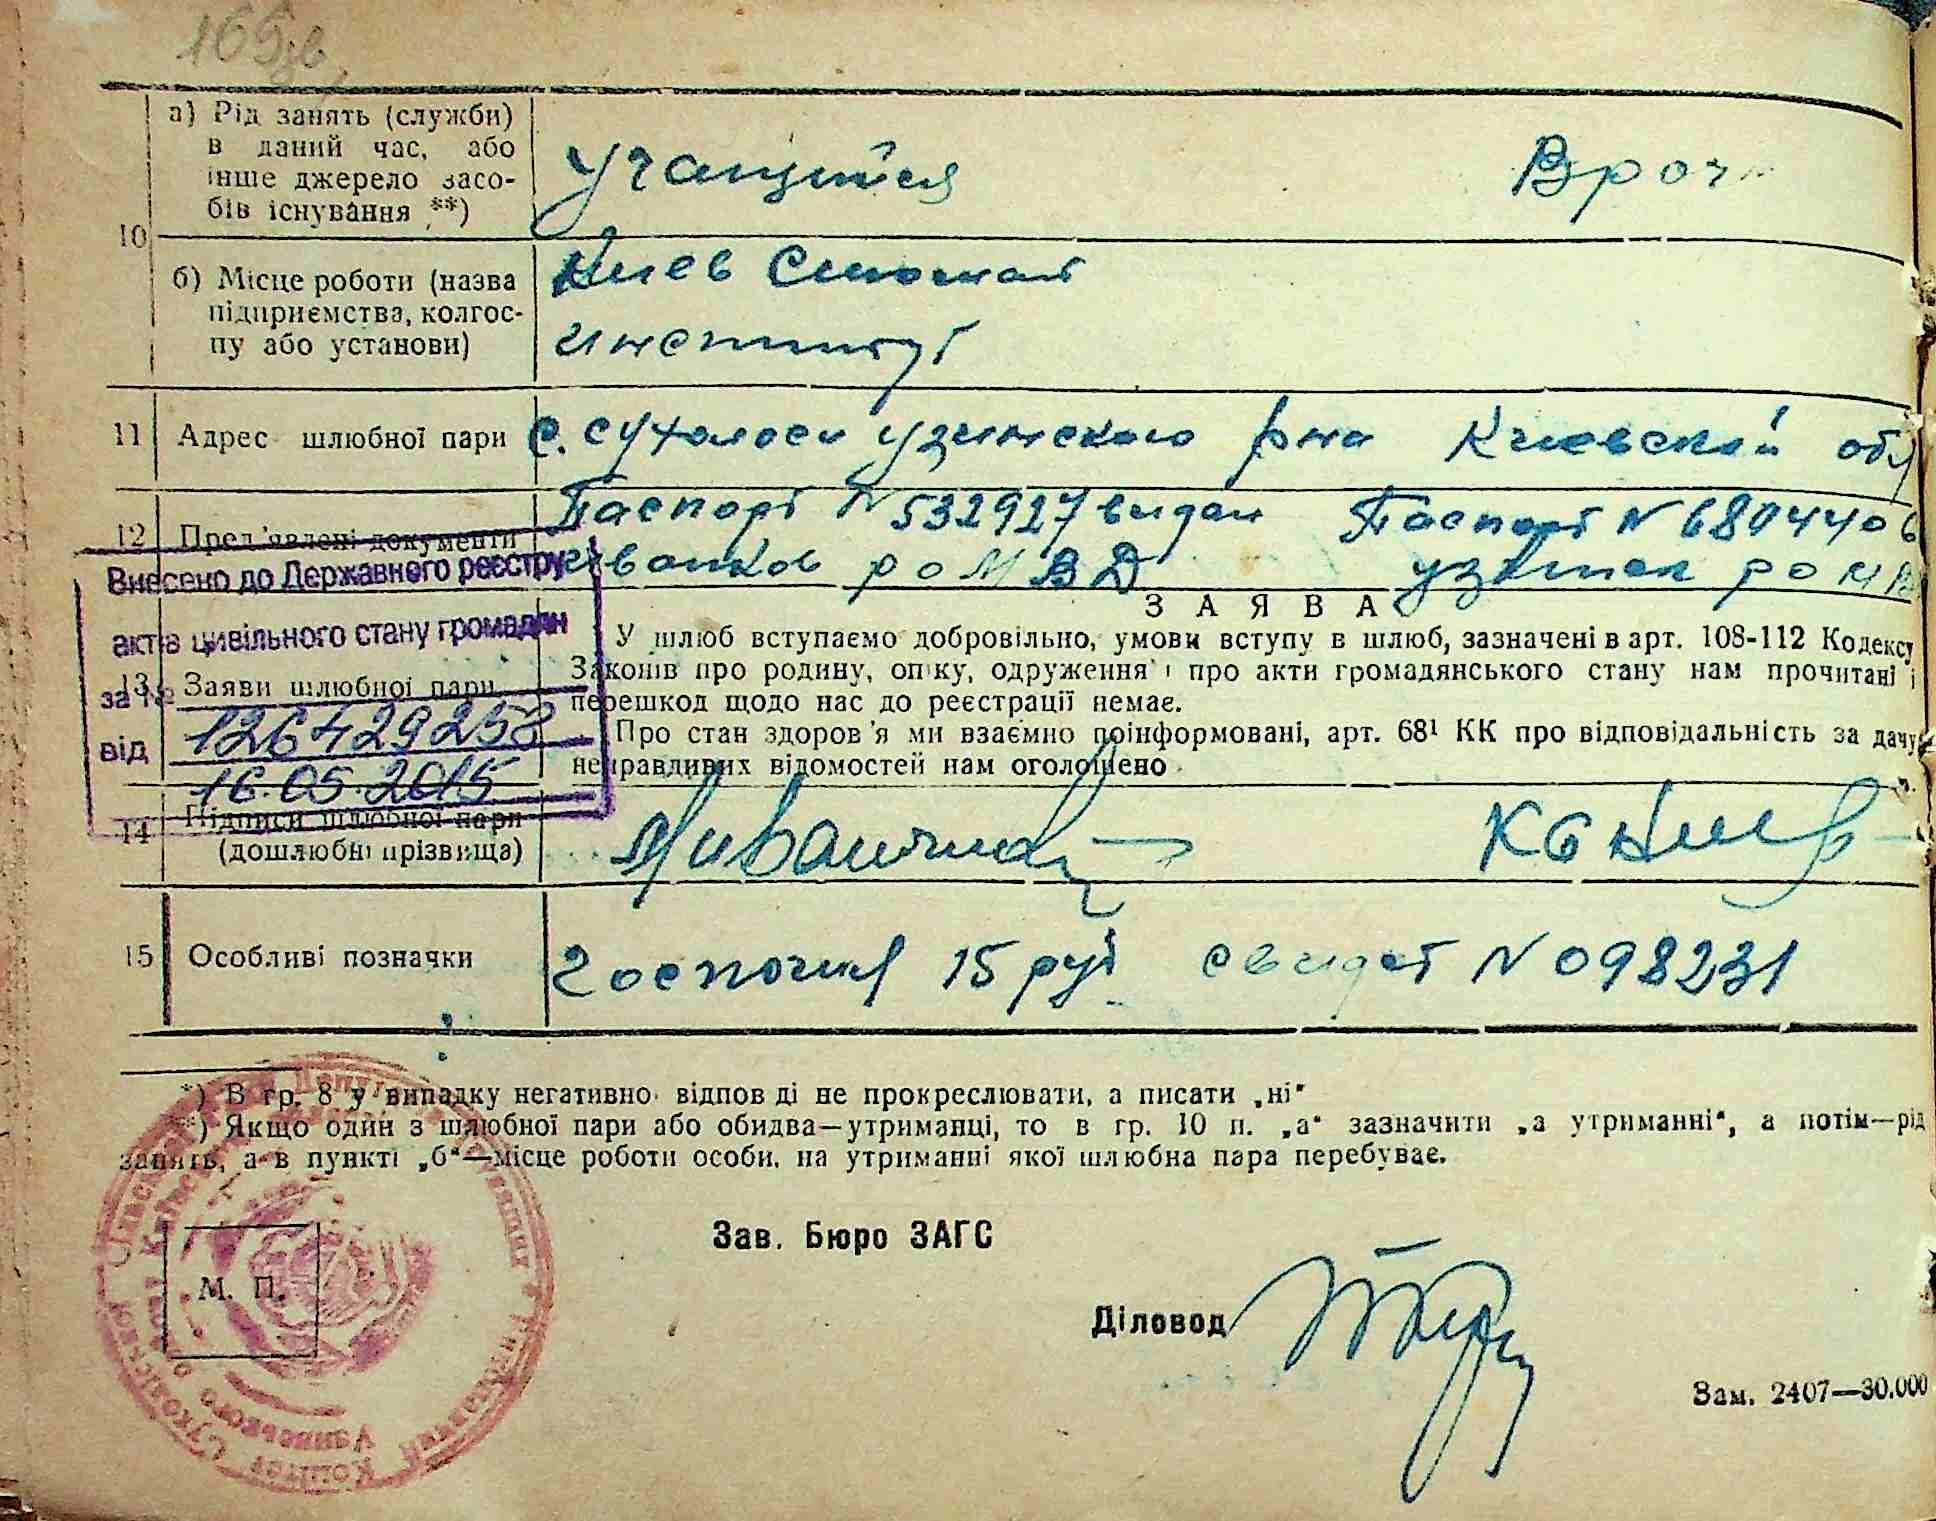 165
10
а) Рід занять (служби)
в даний час, або
інше джерело засо-
бів існування **)
учащийся
Врач
б) Місце роботи (назва
підприємства, колгос-
пу або установи)
Киев
институт
11
Адрес шлюбної пари
с. сухолеси узинского р на Киевской обл
12
Пред'явлені документи
Паспорт N 532927 видан
ро МВД
Паспорт N
узинск ро
Внесено до Державного реєстру
актів цивільного стану громадян
за №
126429258
від
16.05.2015
13
Заяви шлюбної пари
ЗАЯВА
У шлюб вступаємо добровільно, умови вступу в шлюб, зазначені в арт. 108-112 Кодексу
Законів про родину, опіку, одруження і про акти громадянського стану нам прочитані і
перешкод щодо нас до реєстрації немає.
Про стан здоров'я ми взаємно поінформовані, арт. 68¹ КК про відповідальність за дачу
неправдивих відомостей нам оголошено
14
Підписи шлюбної пари
(дошлюбні прізвища)
15
Особливі позначки
госпошл 15 руб свидет N 098231
*) В гр. 8 у випадку негативно відпов ді не прокреслювати, а писати „ні“
**) Якщо один з шлюбної пари або обидва—утриманці, то в гр. 10 п. „а“ зазначити „а утриманні“, а потім—рід
занять, а в пункті „б“—місце роботи особи, на утриманні якої шлюбна пара перебуває.
М. П.
Зав. Бюро ЗАГС
Діловод
Зам. 2407—30.000